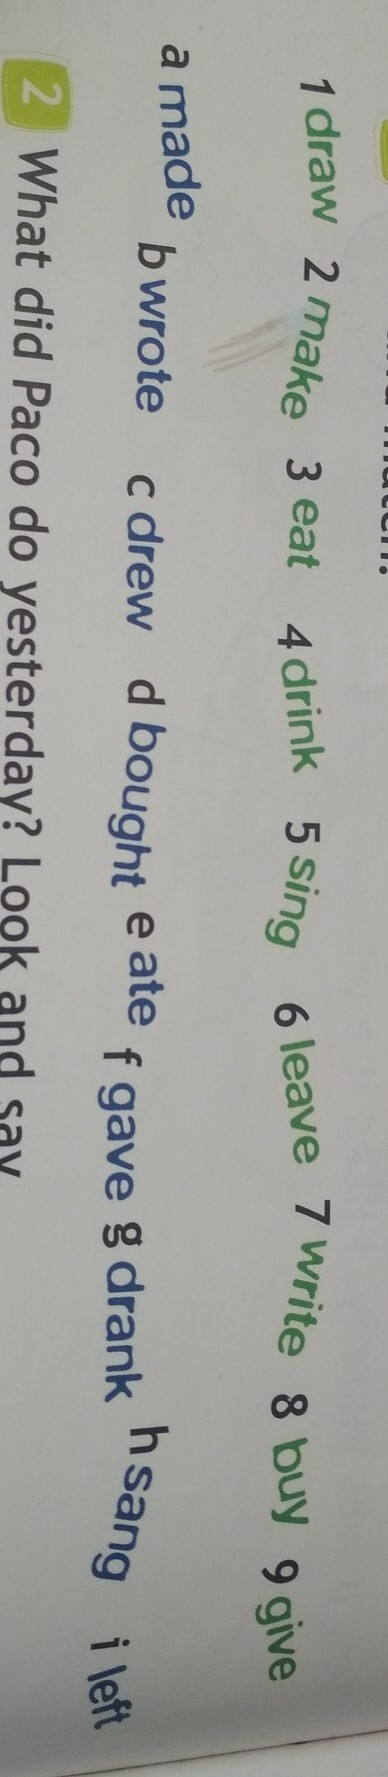 1 draw 2 make 3 eat 4 drink 5 sing 6 leave 7 write 8 buy 9 give
a made b wrote c drew d bought e ate f gave g drank h sang i left
2 What did Paco do yesterday? Look and say